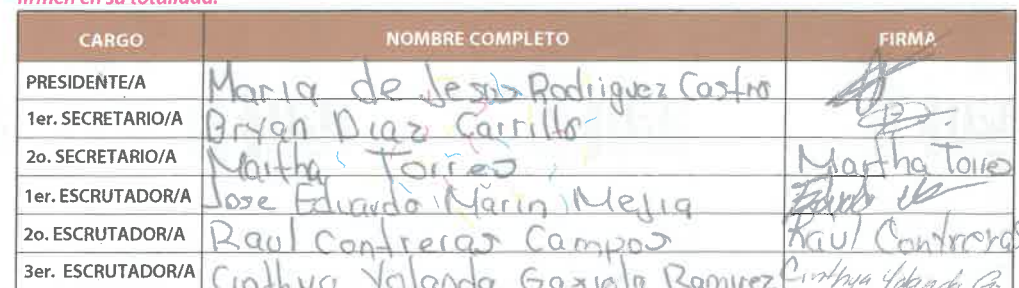 firmen en su totalidad.
CARGO NOMBRE COMPLETO FIRMA
PRESIDENTE/A Maria de Jesus Rodriguez Castro
1er. SECRETARIO/A Bryan Diaz Carrillo
2o. SECRETARIO/A Martha Torres Martha Torres
1er. ESCRUTADOR/A Jose Eduardo Marin Mejia Eduardo
2o. ESCRUTADOR/A Raul Contreras Campos Raul Contreras
3er. ESCRUTADOR/A Cinthya Yolanda Gaxiola Ramirez Cinthya Yolanda G.